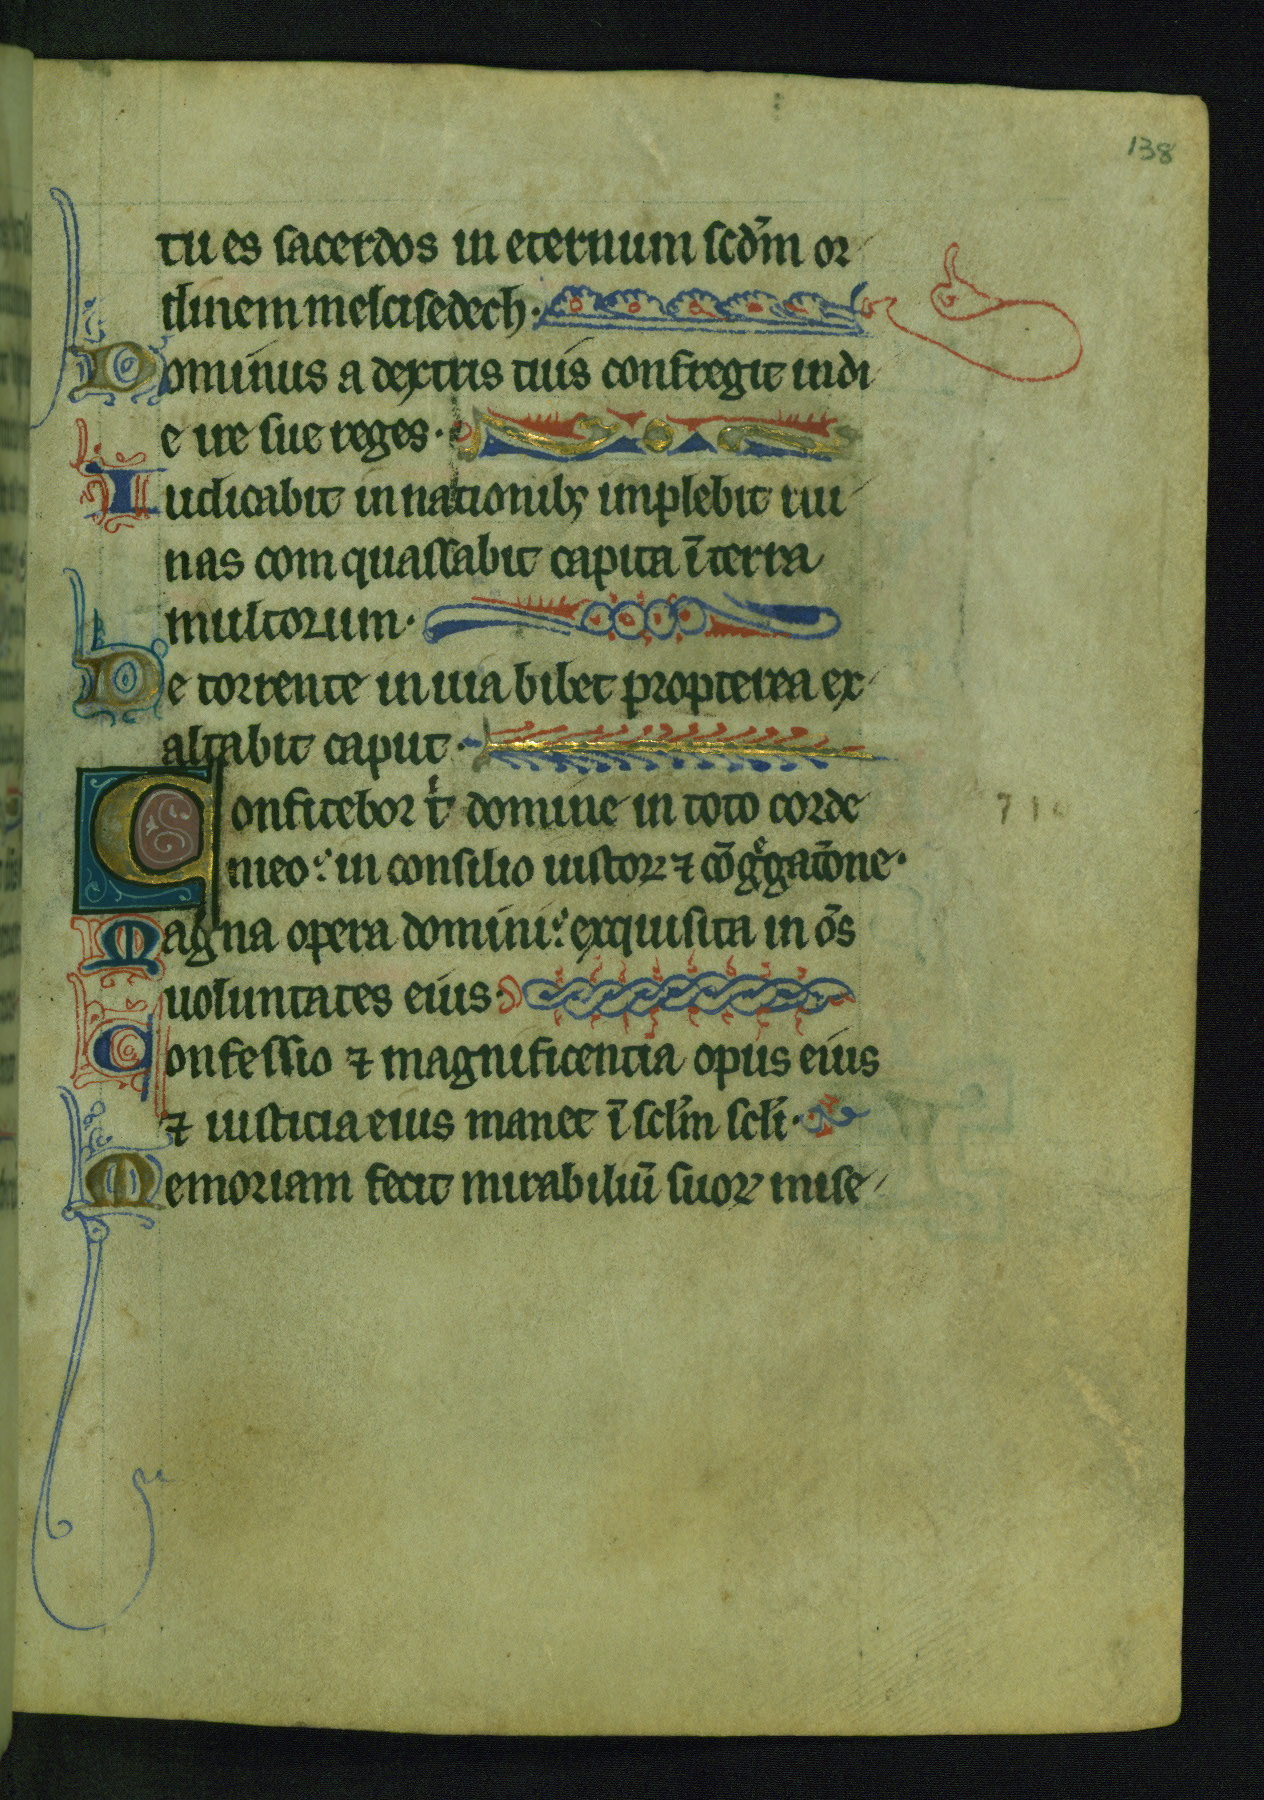 138
tu es sacerdos in eternum scd̄m or
dinem melcisedech·
Dominus a dextris tuis confregit in di
e ire sue reges·
Iudicabit in nationibꝫ implebit rui
nas comquassabit capita ī terra
multorum·
De torrente in uia bibet propterea ex
altabit caput·
Confitebor tⁱ domine in toto corde
meo: in consilio iustoꝝ ⁊ cōgͥgatōne·
Magna opera domini: exquisita in ōs
uoluntates eius·
Confessio ⁊ magnificentia opus eius
⁊ iusticia eius manet ī sclm̄ sclī·
Memoriam fecit mirabiliū suoꝝ mise